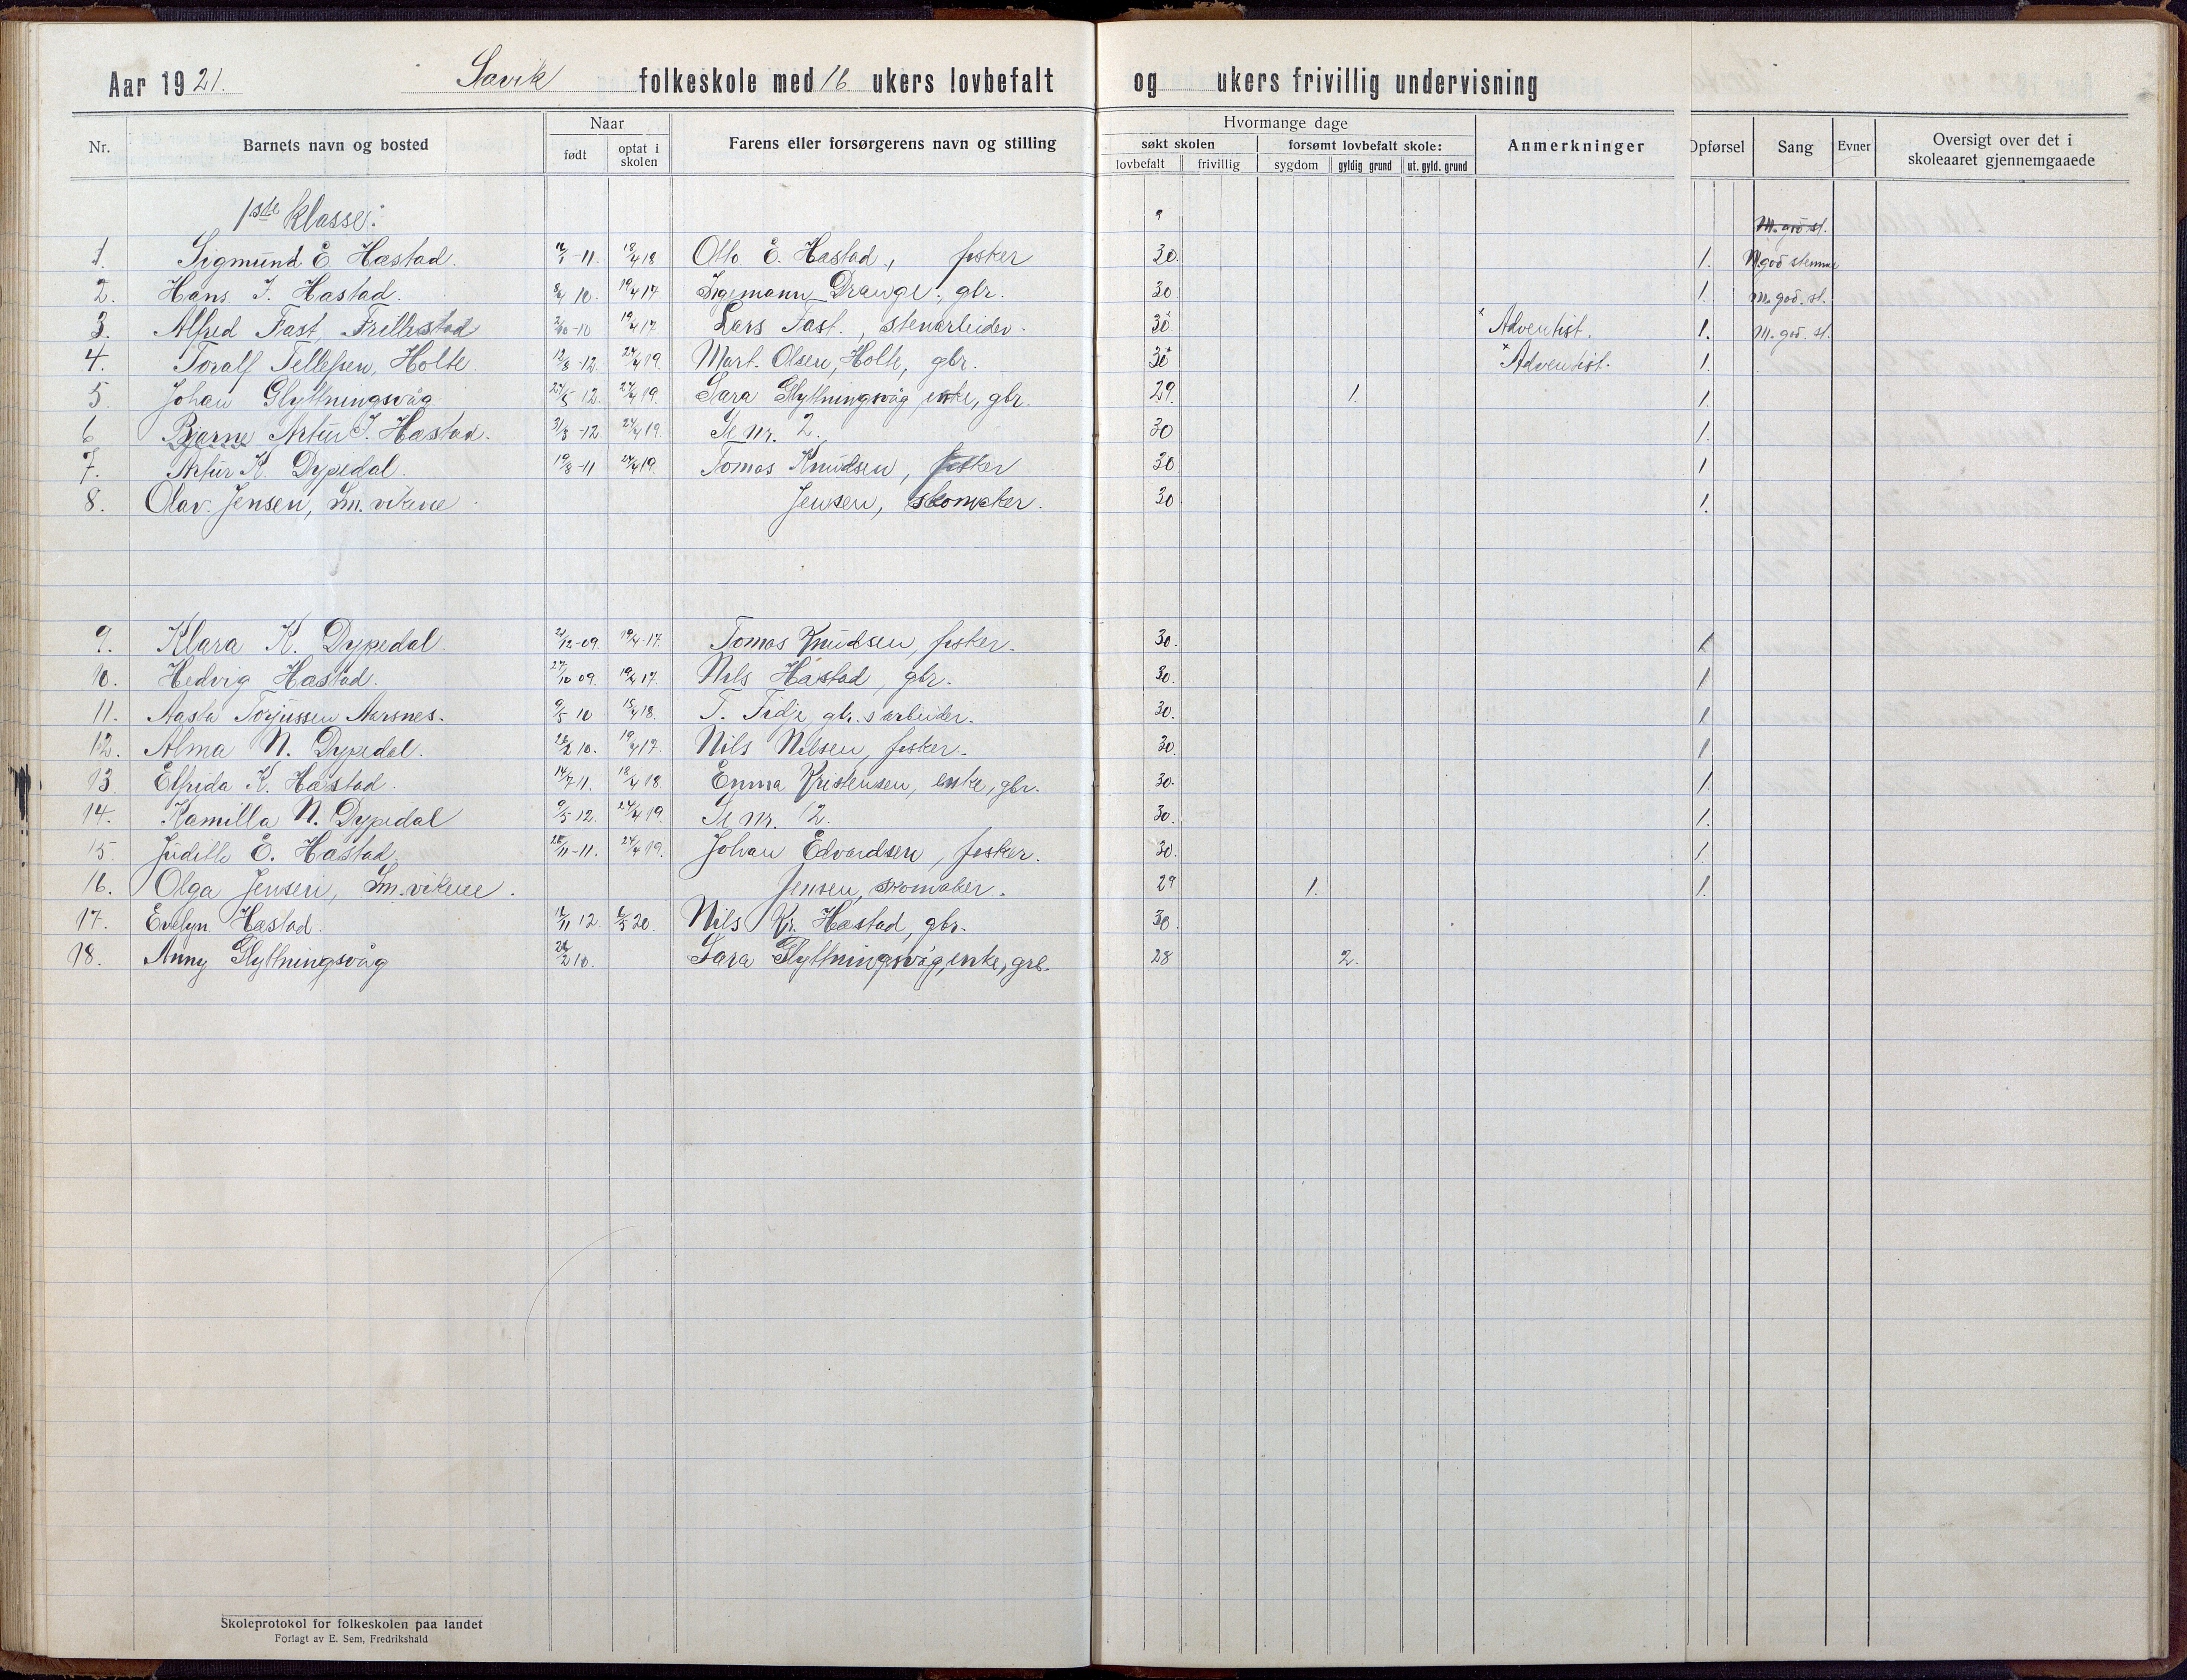 Aar 1921. Savik folkeskole med 16 ukers lovbefalt og ukers frivillig undervisning
Nr. Barnets navn og bosted Naar født optat i skolen Farens eller forsørgerens navn og stilling Hvormange dage søkt skolen lovbefalt frivillig forsømt lovbefalt skole: sygdom gyldig grund ut. gyld. grund Anmerkninger Opførsel Sang Evner Oversigt over det i skoleaaret gjennemgaaede
1ste klasse: M. god st.
1. Sigmund E. Hæstad. -11. 18/4 18 Otto E. Hæstad, fisker 30. 1. M. god stemme
2. Hans I. Hæstad. 10. 19/4 17. Ingemann Drange, gbr. 30 1. m. god. st.
3. Alfred Fast, Frillestad -10 19/4 17. Lars Fast., stenarbeider. 30 × Adventist. 1. M. god. st.
4. Toralf Tellefsen, Holte. 12/8 -12. 24/4 19. Mart. Olsen, Holte, gbr. 30 × Adventist. 1.
5. Johan Glyttningsvåg 27/5 12. 24/4 19. Sara Glyttningsvåg enke, gbr. 29. 1. 1.
6 Bjarne Artur I. Hæstad. 31/8 -12. 24/4 19. Se nr. 2. 30 1.
7. Artur K. Dypedal. 19/8 -11 24/4 19. Tomas Knudsen, fisker 30 1
8. Olav. Jensen, Sm. vikene Jensen, skomaker. 30 1.
9. Klara K. Dypedal. 21/12 -09. 19/4 -17. Tomas Knudsen, fisker. 30. 1
10. Hedvig Hæstad. 27/10 09. 19/4 17. Nils Hæstad, gbr. 30. 1
11. Aasta Torjussen Aarsnes. 9/5 10 18/4 18. T. Fidje, gbr. s arbeider. 30. 1
12. Alma N. Dypedal. 10. 19/4 17. Nils Nilsen, fisker. 30. 1
13. Elfrida K. Hæstad. 14/7 11. 18/4 18. Emma Kristensen, enke, gbr. 30. 1.
14. Kamilla N. Dypedal 9/5 -12. 24/4 19. Se nr. 12. 30. 1.
15. Judith E. Hæstad. -11. 24/4 19. Johan Edvardsen, fisker. 30. 1.
16. Olga Jensen, Sm. vikene. Jensen, skomaker. 29 1. 1.
17. Evelyn Hæstad. 12 20. Nils Kr. Hæstad, gbr. 30
18. Anny Glyttningsvåg 10. Sara Glyttningsvåg, enke, grb. 28 2.
Skoleprotokol for folkeskolen paa landet
Forlagt av E. Sem, Fredrikshald